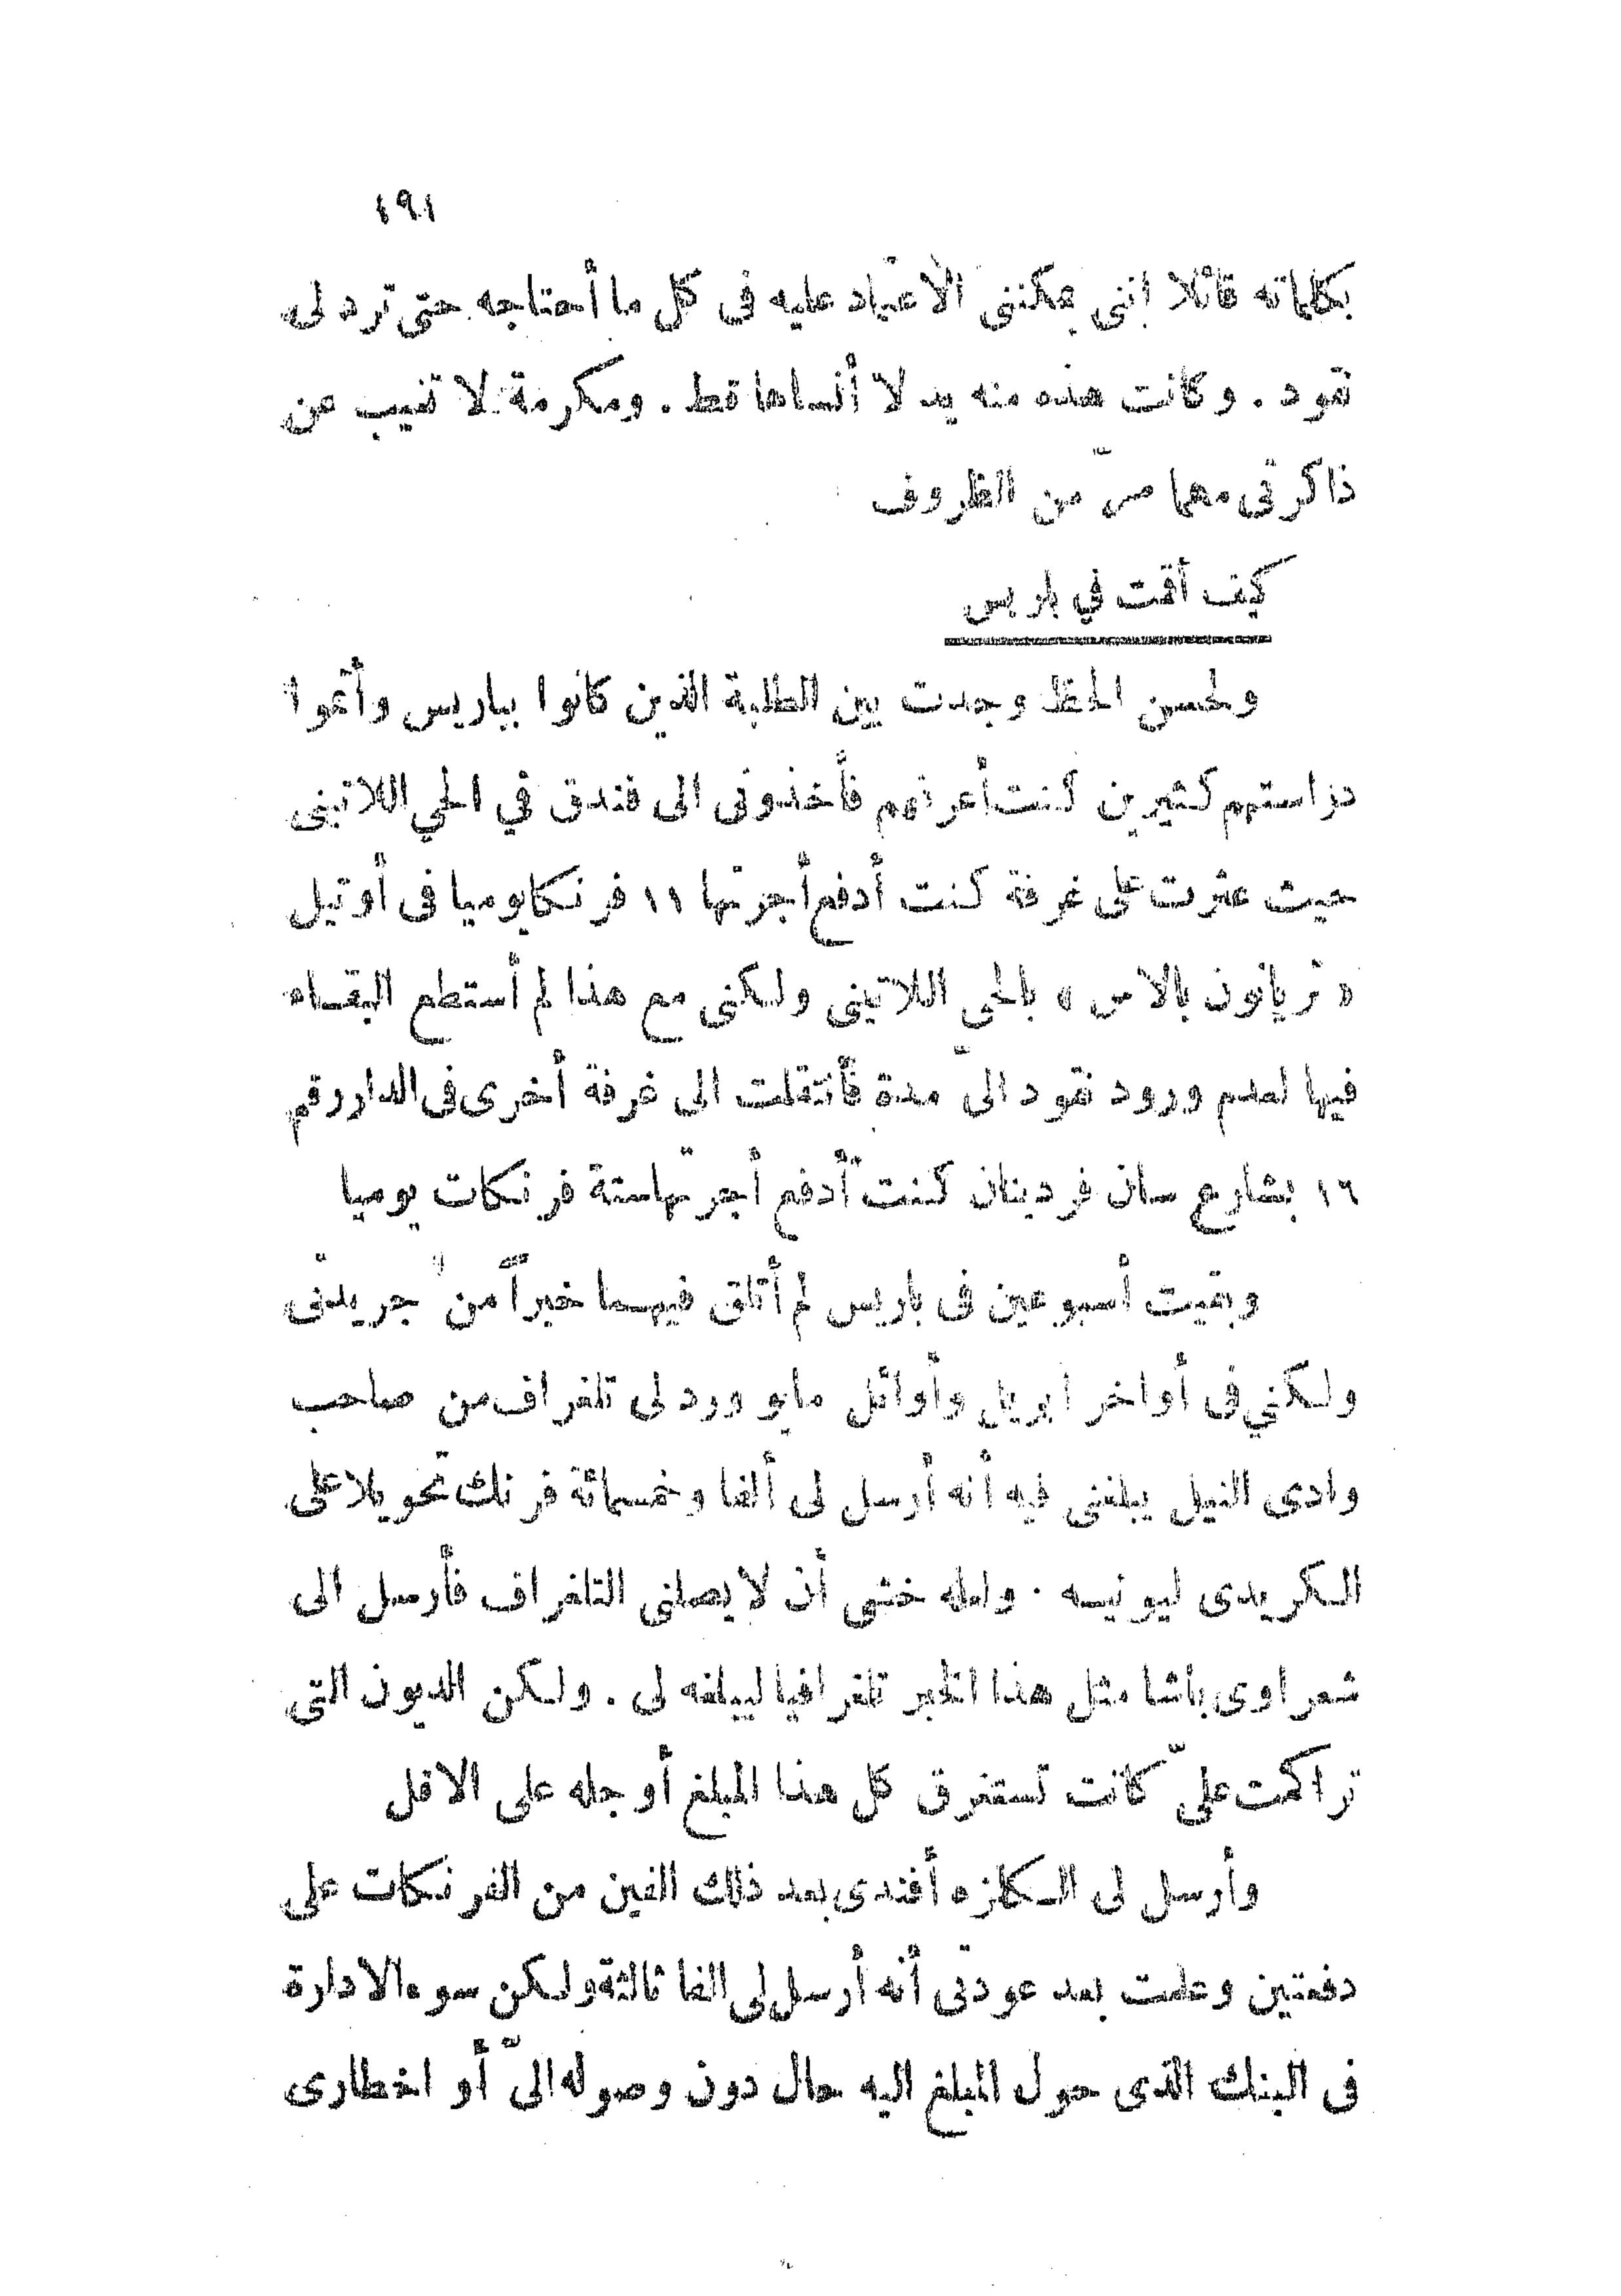 ١٩١
بكلماته قائلا اننى يمكننى الاعتماد عليه فى كل ما أحتاجه حتى ترد لى
نقود . وكانت هذه منه يد لا أنساها قط . ومكرمة لا تغيب عن
ذاكرتى مهما مرّ من الظروف
كيف أقمت في باريس
ولحسن الحظ وجدت بين الطلبة الذين كانوا بباريس وأتموا
دراستهم كثيرين كنت أعرفهم فأخذونى الى فندق في الحي اللاتينى
حيث عثرت على غرفة كنت أدفع أجرتها ١١ فرنكا يوميا فى أوتيل
« تريانون بالاس » بالحي اللاتينى ولكنى مع هذا لم أستطع البقاء
فيها لعدم ورود نقود الىّ مدة فأنتقلت الى غرفة أخرى فى الدار رقم
١٦ بشارع سان فردينان كنت أدفع أجرتها ستة فرنكات يوميا
وبقيت أسبوعين فى باريس لم أتلق فيهما خبراً من جريدتى
ولكني فى أواخر ابريل وأوائل مايو ورد لى تلغراف من صاحب
وادى النيل يبلغنى فيه أنه أرسل لى ألفا وخمسمائة فرنك تحويلا على
الكريدى ليونيسه . ولعله خشى أن لا يصلنى التلغراف فأرسل الى
شعراوى باشا مثل هذا الخبر تلغرافيا ليبلغه لى . ولكن الديون التى
تراكمت علىّ كانت تستغرق كل هذا المبلغ أو جله على الاقل
وأرسل لى الكلزه أفندى بعد ذلك الفين من الفرنكات على
دفعتين وعلمت بعد عودتى أنه أرسل لى الفا ثالثة ولكن سوء الادارة
فى البنك الذى حول المبلغ اليه حال دون وصوله الىّ أو اخطارى